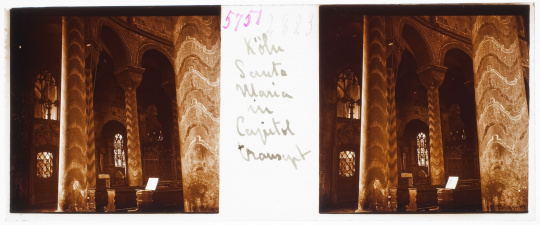 5751
Köln
Santa
Maria
in
Capitol
Transept